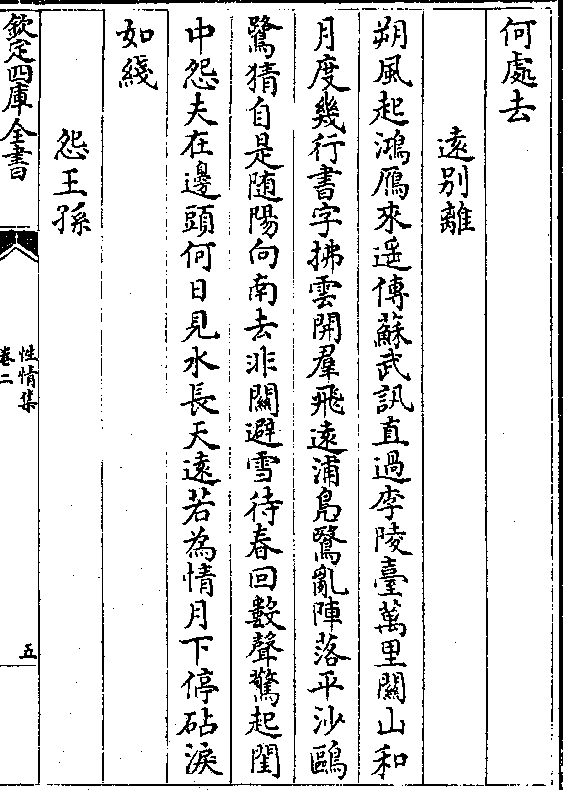 何處去
遠別離
朔風起鴻鴈來遥傳蘇武訊直過李陵臺萬里關山和
月度幾行書字拂雲開羣飛遠浦鳧鷖亂陣落平沙鷗
鷺猜自是随陽向南去非關避雪待春回數聲驚起閨
中怨夫在邊頭何日見水長天遠若為情月下停砧淚
如綫
怨王孫
欽定四庫全書
性情集
卷二
五